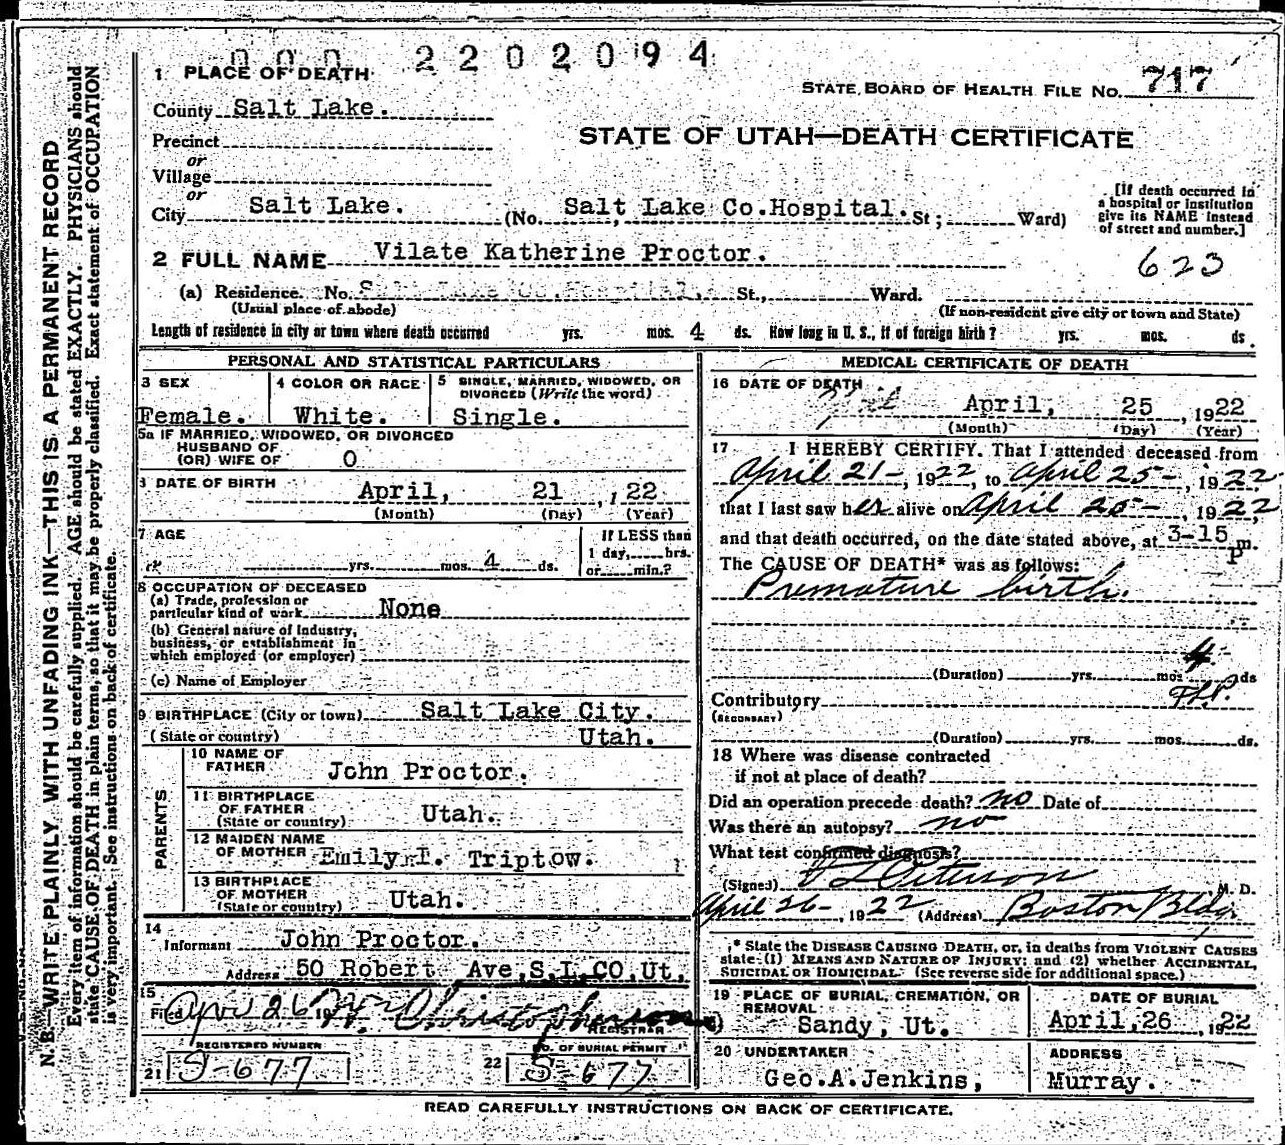 000 2202094
1 PLACE OF DEATH
STATE BOARD OF HEALTH FILE NO. 717
County Salt Lake.
STATE OF UTAH—DEATH CERTIFICATE
Precinct
or
Village
or
City Salt Lake. (No. Salt Lake Co.Hospital. St; Ward)
[If death occurred in a hospital or institution give its NAME instead of street and number.]
2 FULL NAME Vilate Katherine Proctor.
623
(a) Residence. No. Salt Lake Co.Hospital, St., Ward.
(Usual place of abode) (If non-resident give city or town and State)
Length of residence in city or town where death occurred yrs. mos. 4 ds. How long in U. S., if of foreign birth? yrs. mos. ds.
PERSONAL AND STATISTICAL PARTICULARS
3 SEX
Female.
4 COLOR OR RACE
White.
5 SINGLE, MARRIED, WIDOWED, OR DIVORCED (Write the word)
Single.
5a IF MARRIED, WIDOWED, OR DIVORCED
HUSBAND OF
(OR) WIFE OF O
DATE OF BIRTH April, 21, , 22
(Month) (Day) (Year)
7 AGE
yrs. mos. 4 ds.
If LESS than
1 day, hrs.
or min.?
8 OCCUPATION OF DECEASED
(a) Trade, profession or
particular kind of work None
(b) General nature of Industry,
business, or establishment in
which employed (or employer)
(c) Name of Employer
9 BIRTHPLACE (City or town) Salt Lake City.
(State or country) Utah.
PARENTS
10 NAME OF
FATHER John Proctor.
11 BIRTHPLACE
OF FATHER
(State or country) Utah.
12 MAIDEN NAME
OF MOTHER Emily I. Triptow.
13 BIRTHPLACE
OF MOTHER
(State or country) Utah.
14
Informant John Proctor.
Address 50 Robert Ave,S.L.CO.Ut.
15
Filed Apr 26 19 Wm Christopherson
REGISTRAR
REGISTERED NUMBER
21 S-677
NO. OF BURIAL PERMIT
22 S-677
MEDICAL CERTIFICATE OF DEATH
16 DATE OF DEATH
April, 25 , 1922
(Month) (Day) (Year)
17 I HEREBY CERTIFY. That I attended deceased from
April 21-, 1922, to April 25-, 1922
that I last saw her alive on April 25-, 1922,
and that death occurred, on the date stated above, at 3-15 P m.
The CAUSE OF DEATH* was as follows:
Premature birth.
4
(Duration) yrs. mos. ds
Contributory
(SECONDARY)
(Duration) yrs. mos. ds.
18 Where was disease contracted
if not at place of death?
Did an operation precede death? no Date of
Was there an autopsy? no
What test confirmed diagnosis?
(Signed) Peterson M. D.
April 26-, 1922 (Address) Boston Bldg
* State the DISEASE CAUSING DEATH, or, in deaths from VIOLENT CAUSES
state (1) MEANS AND NATURE OF INJURY; and (2) whether ACCIDENTAL,
SUICIDAL OR HOMICIDAL. (See reverse side for additional space.)
19 PLACE OF BURIAL, CREMATION, OR
REMOVAL
Sandy, Ut.
DATE OF BURIAL
April,26 , 1922
20 UNDERTAKER
Geo.A.Jenkins,
ADDRESS
Murray.
READ CAREFULLY INSTRUCTIONS ON BACK OF CERTIFICATE.
N. B.—WRITE PLAINLY, WITH UNFADING INK—THIS IS A PERMANENT RECORD
Every item of information should be carefully supplied. AGE should be stated EXACTLY. PHYSICIANS should
state CAUSE OF DEATH in plain terms, so that it may be properly classified. Exact statement of OCCUPATION
is very important. See instructions on back of certificate.